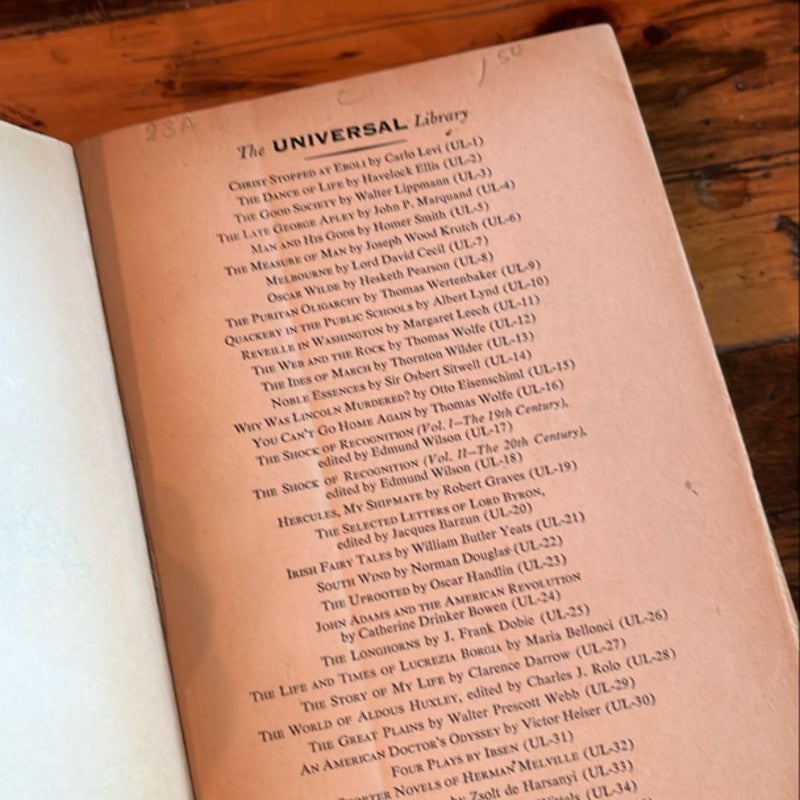 23A
1 50
The UNIVERSAL Library
CHRIST STOPPED AT EBOLI by Carlo Levi (UL-1)
THE DANCE OF LIFE by Havelock Ellis (UL-2)
THE GOOD SOCIETY by Walter Lippmann (UL-3)
THE LATE GEORGE APLEY by John P. Marquand (UL-4)
MAN AND HIS GODS by Homer Smith (UL-5)
THE MEASURE OF MAN by Joseph Wood Krutch (UL-6)
MELBOURNE by Lord David Cecil (UL-7)
OSCAR WILDE by Hesketh Pearson (UL-8)
THE PURITAN OLIGARCHY by Thomas Wertenbaker (UL-9)
QUACKERY IN THE PUBLIC SCHOOLS by Albert Lynd (UL-10)
REVEILLE IN WASHINGTON by Margaret Leech (UL-11)
THE WEB AND THE ROCK by Thomas Wolfe (UL-12)
THE IDES OF MARCH by Thornton Wilder (UL-13)
NOBLE ESSENCES by Sir Osbert Sitwell (UL-14)
WHY WAS LINCOLN MURDERED? by Otto Eisenschiml (UL-15)
YOU CAN'T GO HOME AGAIN by Thomas Wolfe (UL-16)
THE SHOCK OF RECOGNITION (Vol. I—The 19th Century),
edited by Edmund Wilson (UL-17)
THE SHOCK OF RECOGNITION (Vol. II—The 20th Century),
edited by Edmund Wilson (UL-18)
HERCULES, MY SHIPMATE by Robert Graves (UL-19)
THE SELECTED LETTERS OF LORD BYRON,
edited by Jacques Barzun (UL-20)
IRISH FAIRY TALES by William Butler Yeats (UL-21)
SOUTH WIND by Norman Douglas (UL-22)
THE UPROOTED by Oscar Handlin (UL-23)
JOHN ADAMS AND THE AMERICAN REVOLUTION
by Catherine Drinker Bowen (UL-24)
THE LONGHORNS by J. Frank Dobie (UL-25)
THE LIFE AND TIMES OF LUCREZIA BORGIA by Maria Bellonci (UL-26)
THE STORY OF MY LIFE by Clarence Darrow (UL-27)
THE WORLD OF ALDOUS HUXLEY, edited by Charles J. Rolo (UL-28)
THE GREAT PLAINS by Walter Prescott Webb (UL-29)
AN AMERICAN DOCTOR'S ODYSSEY by Victor Heiser (UL-30)
FOUR PLAYS BY IBSEN (UL-31)
SHORTER NOVELS OF HERMAN MELVILLE (UL-32)
by Zsolt de Harsanyi (UL-33)
(UL-34)